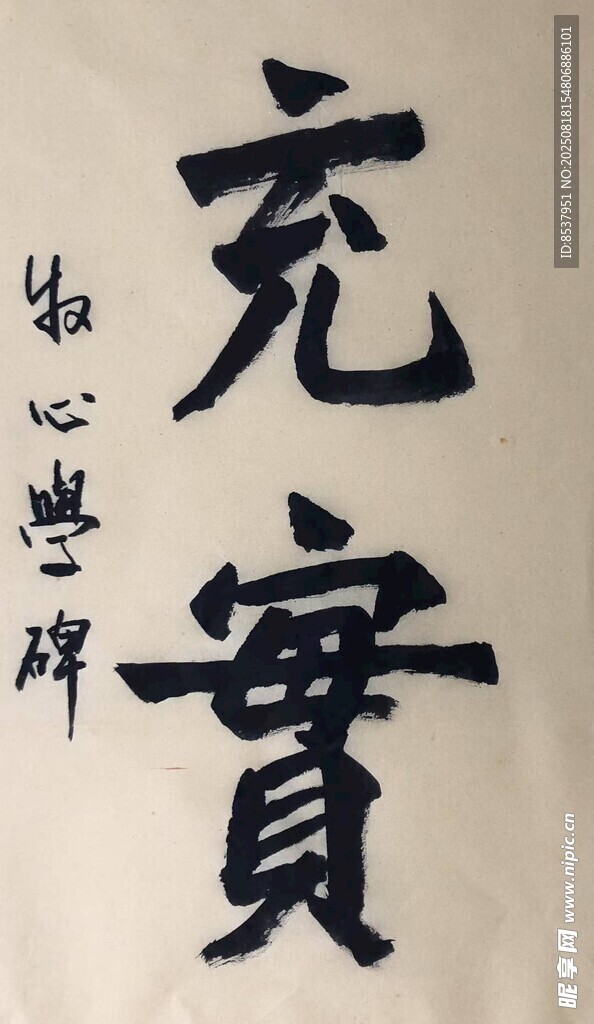 充實
牧心學碑
ID:8537951 NO:20250818154806886101
昵享网 www.nipic.cn